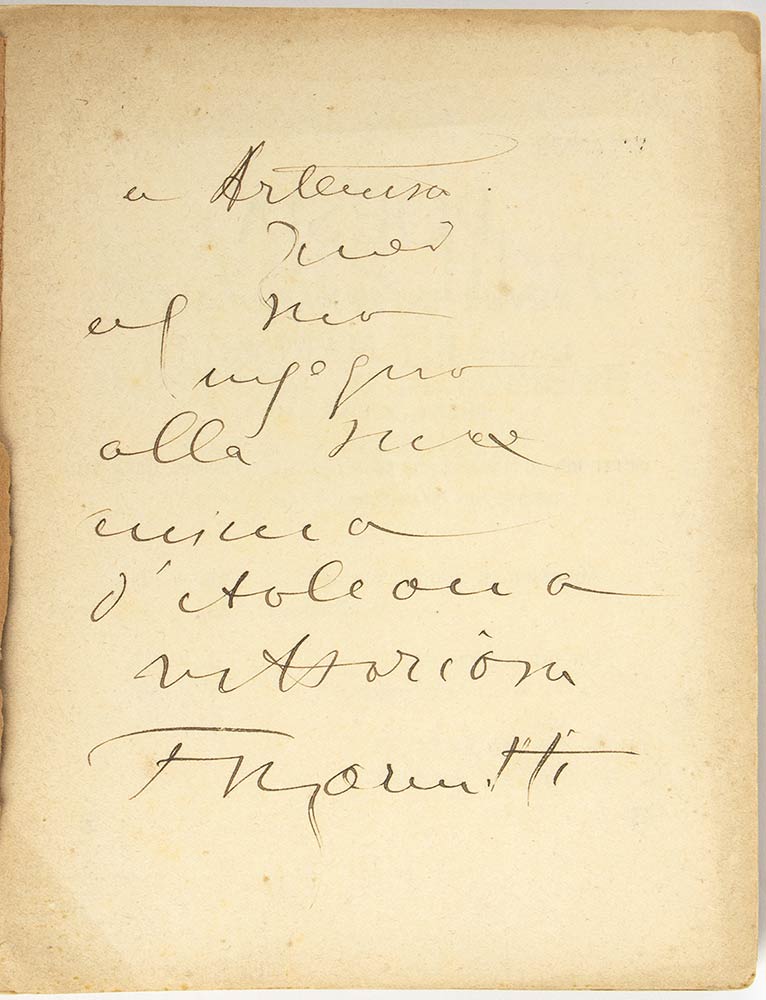 a Artemisia
Zimei
al suo
ingegno
alla sua
anima
d'italiana
vittoriosa
FTMarinetti